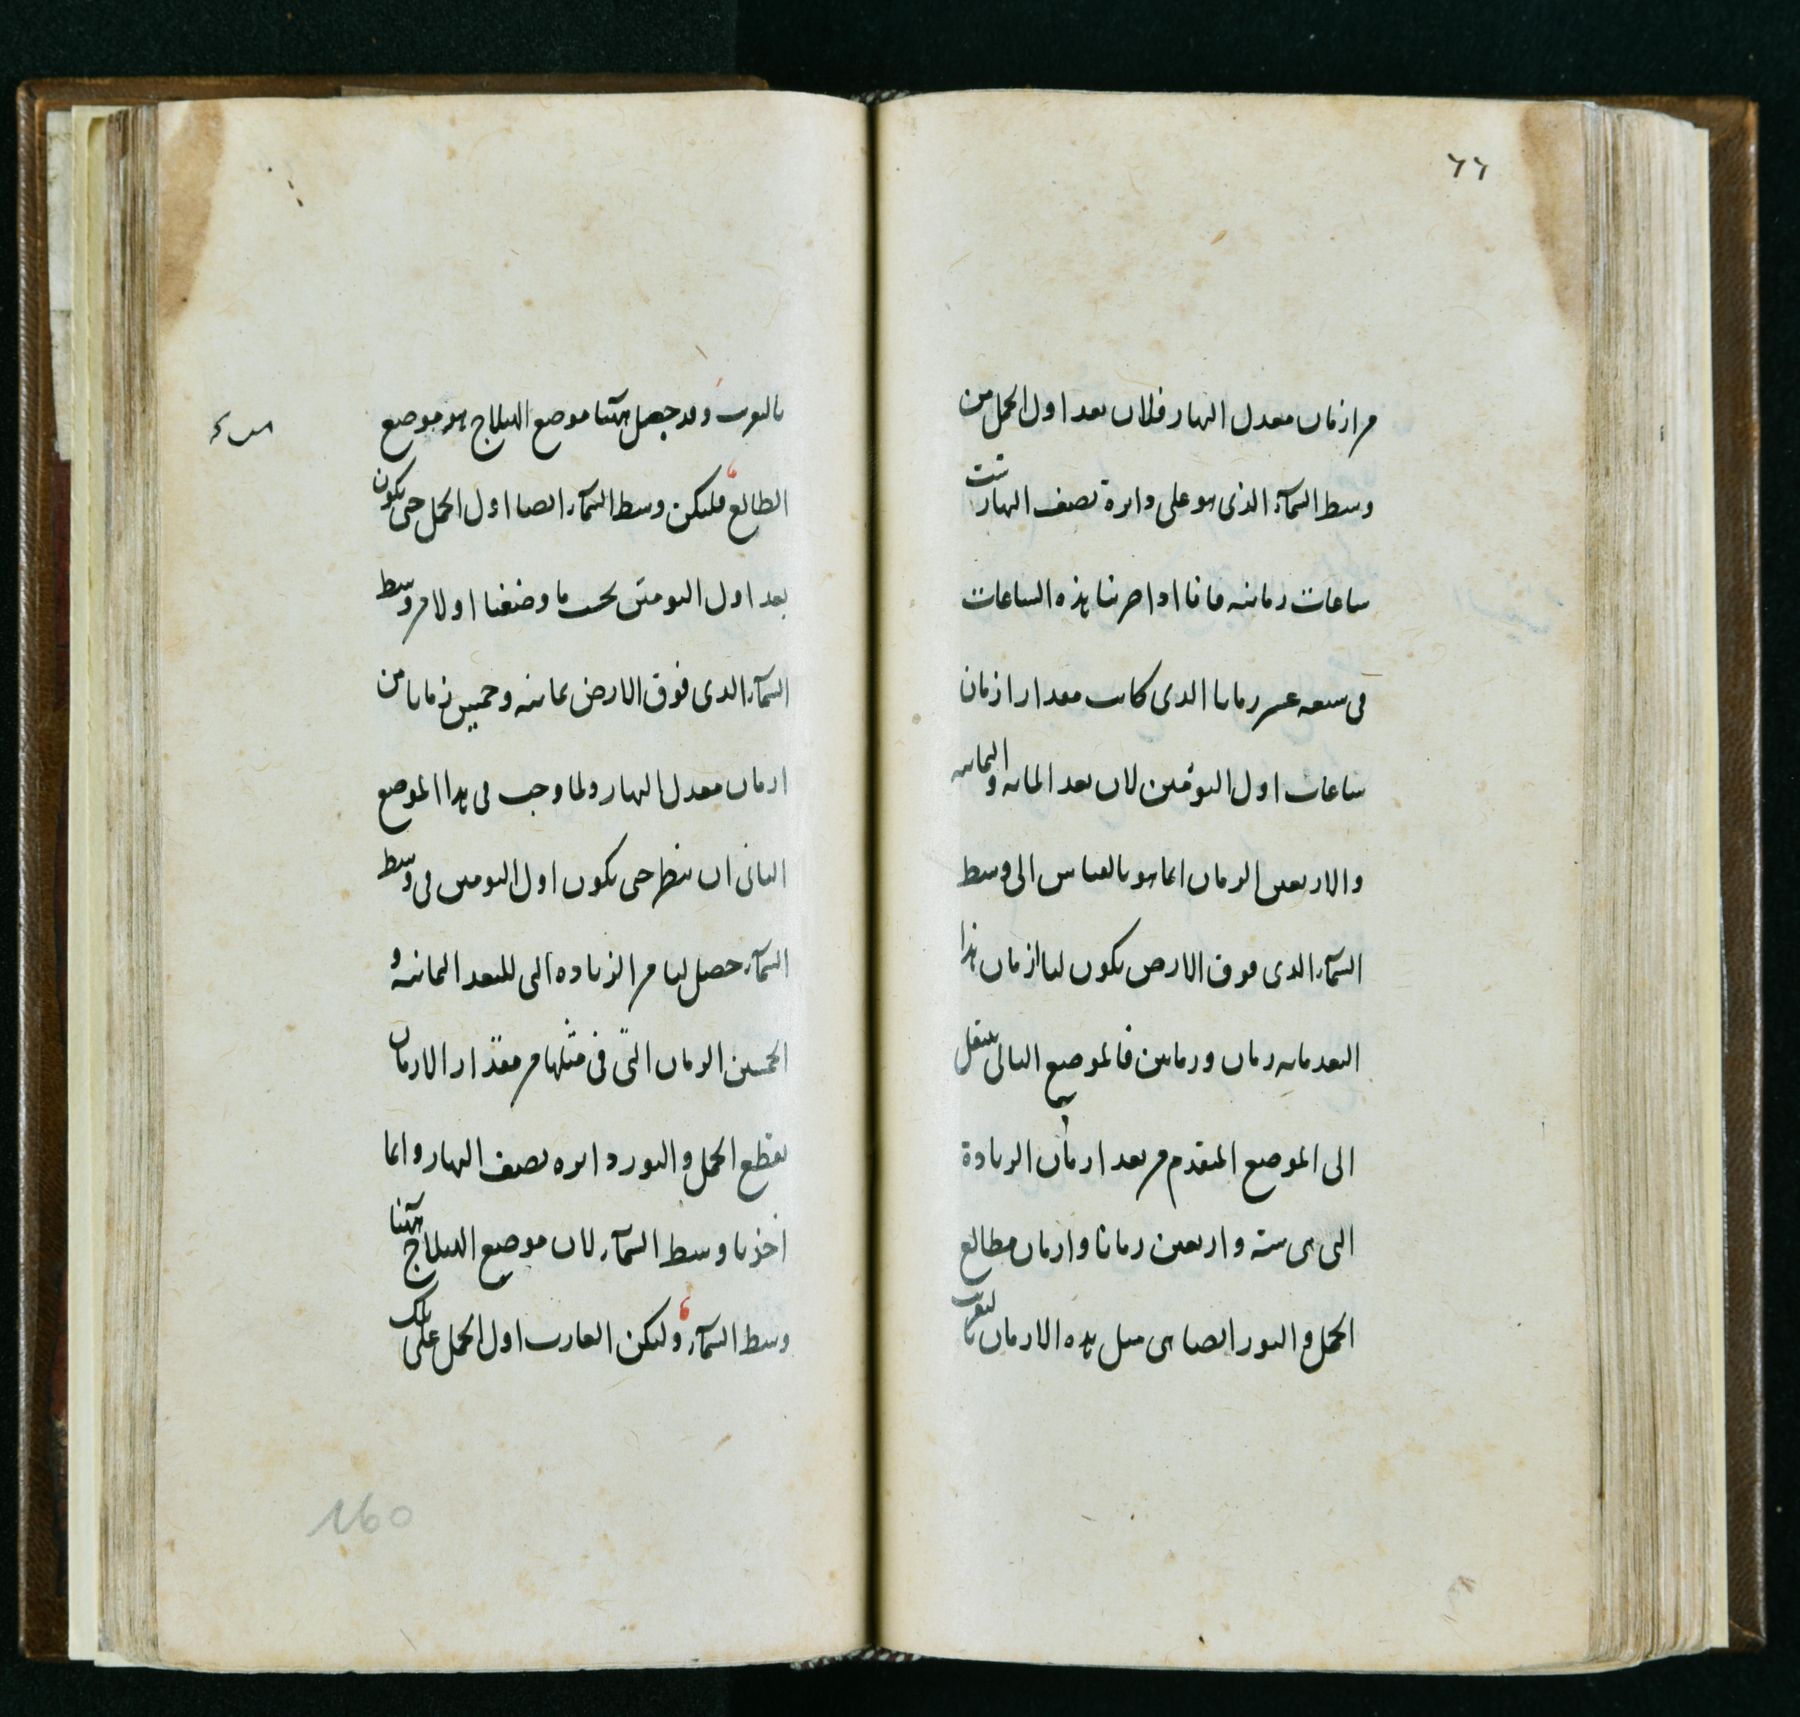 ٦٦
من ازمان معدل النهار فلان بعد اول الحمل من
وسط السماء الذى هو على دايرة نصف النهار ست
ساعات زمانيه فانا اذا ضربنا هذه الساعات
فى سبعه عشر زمانا الذى كانت مقدار ازمان
ساعات اول التومين لان بعد المايه والثمانيه
والاربعين الزمان انما هو بالقياس الى وسط
السماء الذى فوق الارض يكون لنا ازمان هذا
البعد مايه زمان وزمانين فالموضع التالى ينتقل
الى الموضع المتقدم من بعد ازمان الزيادة
التى هى ستة واربعين زمانا وازمان مطالع
الحمل والثور ايضا هى مثل هذه الازمان بالتقريب
بالتقريب وقد جعل ههنا موضع الهيلاج هو موضع
الطالع فليكن وسط السماء ايضا اول الحمل حتى يكون
بعد اول التومين بحسب ما وضعنا اولا من وسط
السماء الذى فوق الارض ثمانيه وخمسين زمانا من
ازمان معدل النهار ولما وجب فى هذا الموضع
الثانى ان ننظر حتى يكون اول التومين فى وسط
السماء حصل لنا من الزياده التى للبعد الثمانيه و
الخمسين الزمان التى فى مثلها من مقدار الازمان
يقطع الحمل والثور دايره نصف النهار وانما
اخذنا وسط السماء لان موضع الهيلاج ههنا
وسط السماء وليكن الغارب اول الحمل على تلك
160